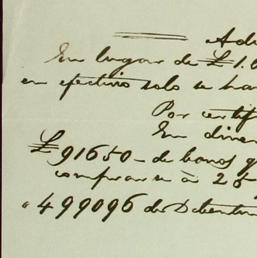 Adi
En lugar de £ 1.0
en efectivo solo se ha
Por certif
En diner
£91650 - de bonos q
comprarse á 25
" 499096 de Debentur